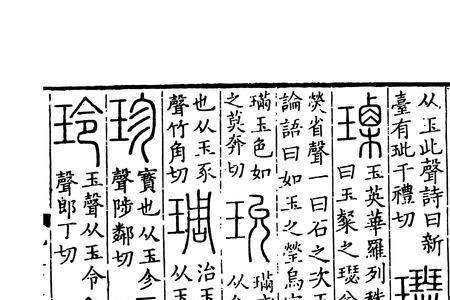 从玉此聲詩曰新
臺有玼千禮切
瑮
玉英華羅列秩
曰玉粲之璱
熒省聲一曰石之次
論語曰如玉之瑩烏
璊玉色如
之莫奔切
玧
也从玉豖
聲竹角切
琱
治玉
从玉
珍
寶也从玉㐱
聲陟鄰切
玲
玉聲从玉令
聲郎丁切